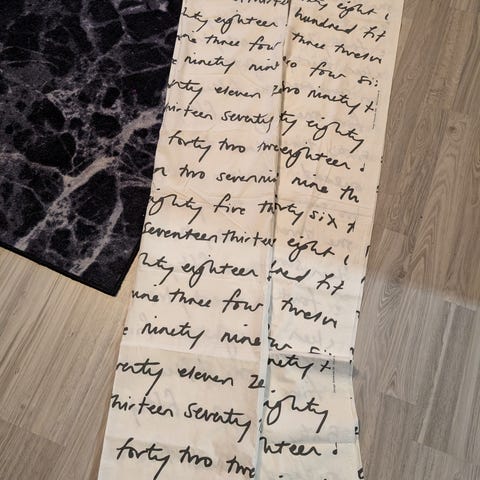 eight
hty eighteen hundred fif
ne three four three twelve
ninety nin o four si
ty eleven z ro ninety t
hirteen seventy ty eighty
forty two tw eighteen
n two sevennin nine th
ighty five thirty six
seventeen thirteen eight
hty eighteen dred fif
nine three four twelve
e ninety nine si
venty eleven ze nety t
thirteen seventy eighty
forty two twe hteen